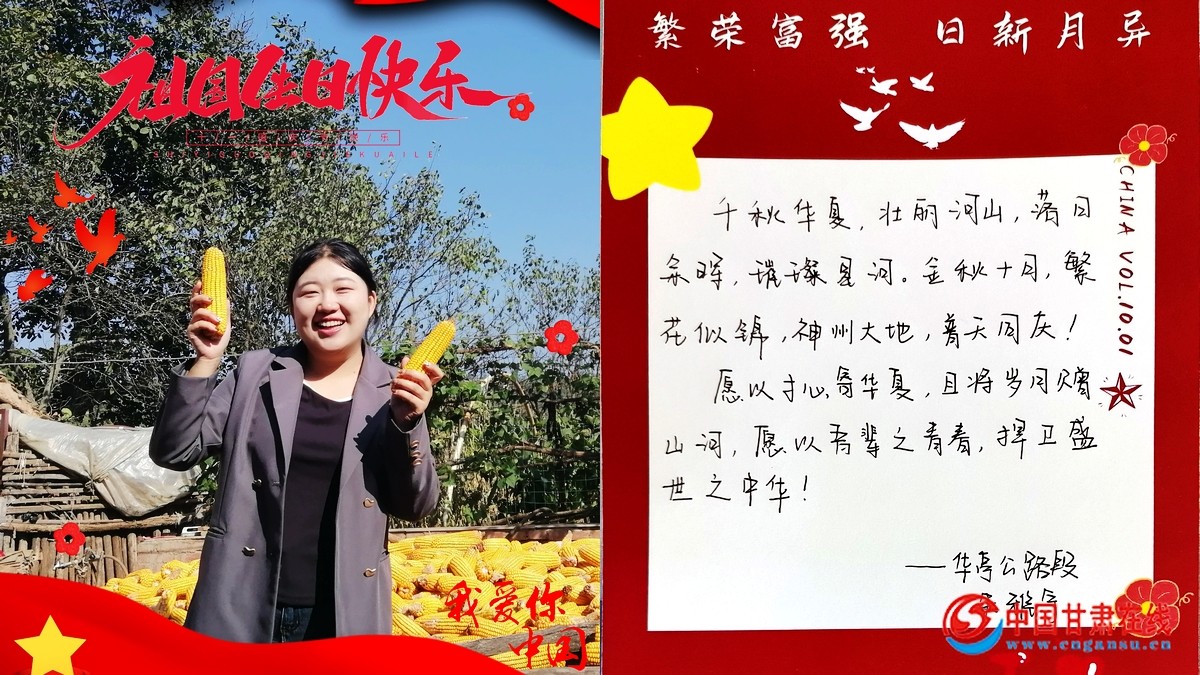 祖国生日快乐
我爱你
中国
繁荣富强 日新月异
CHINA VOL.10.01
千秋华夏，壮丽河山，落日
余晖，璀璨星河。金秋十月，繁
花似锦，神州大地，普天同庆！
愿以寸心寄华夏，且将岁月赠
山河，愿以吾辈之青春，捍卫盛
世之中华！
——华亭公路段
中国甘肃在线
www.cngansu.cn